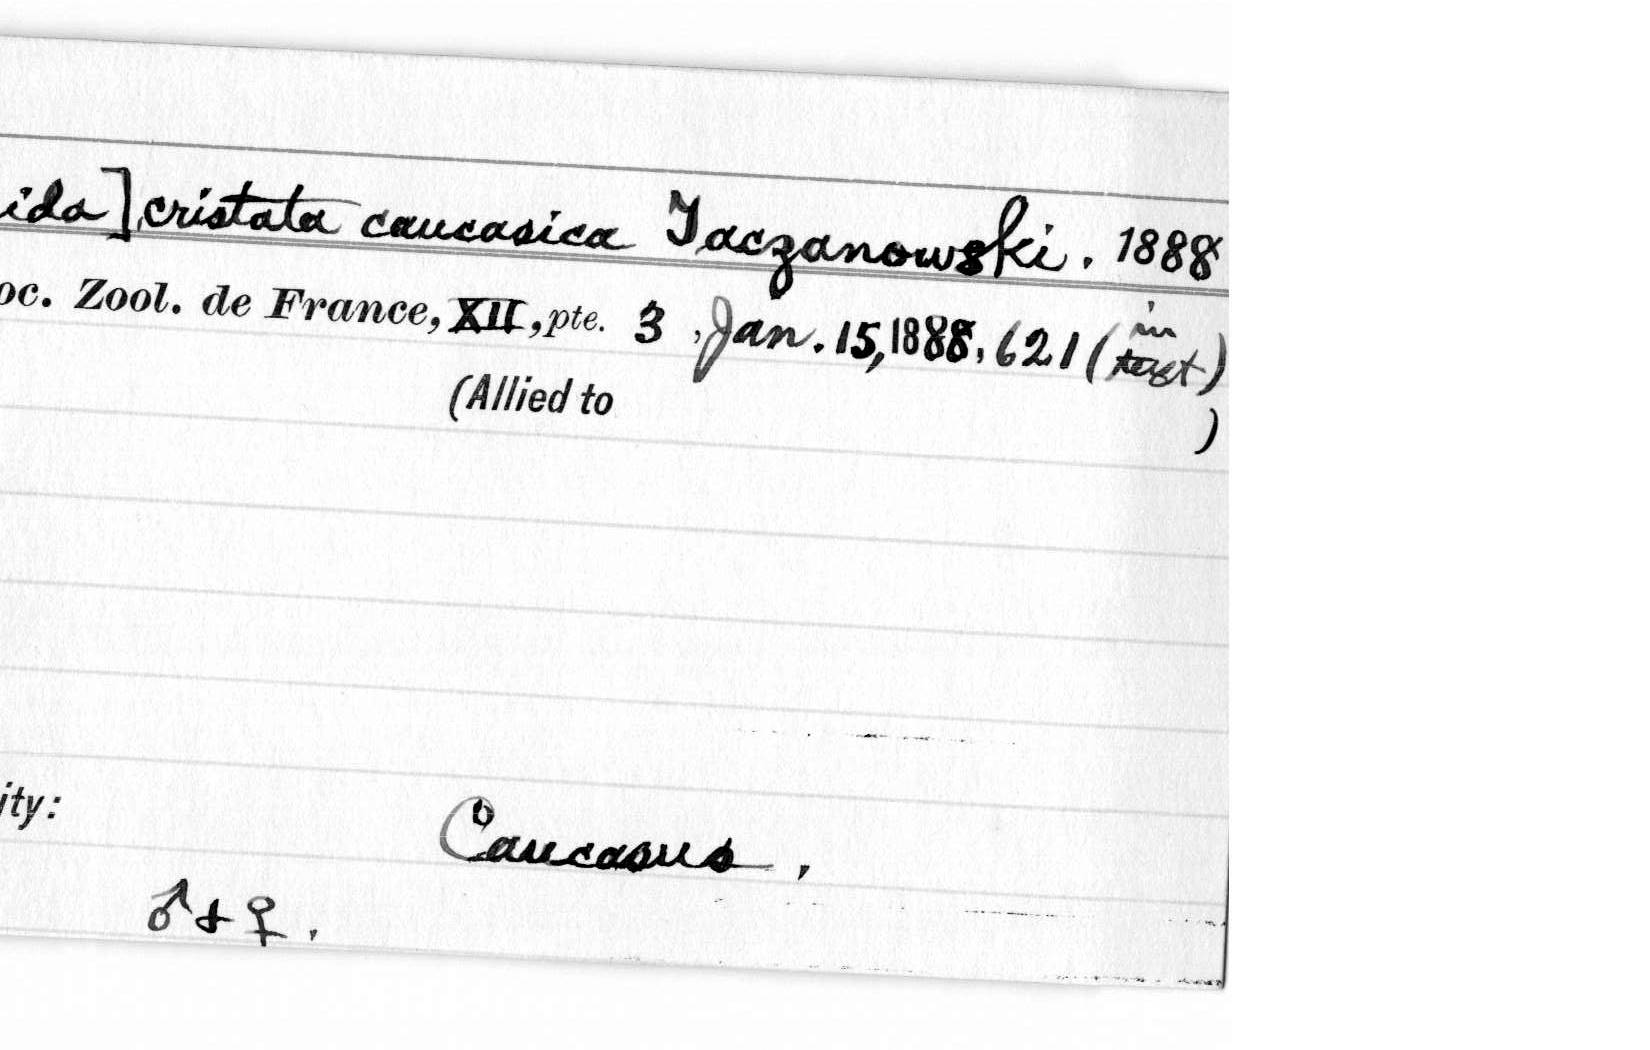 ida] cristata caucasica Taczanowski. 1888
oc. Zool. de France, XII, pte. 3, Jan. 15, 1888, 621 (in text)
(Allied to )
ity: Caucasus.
♂ + ♀.